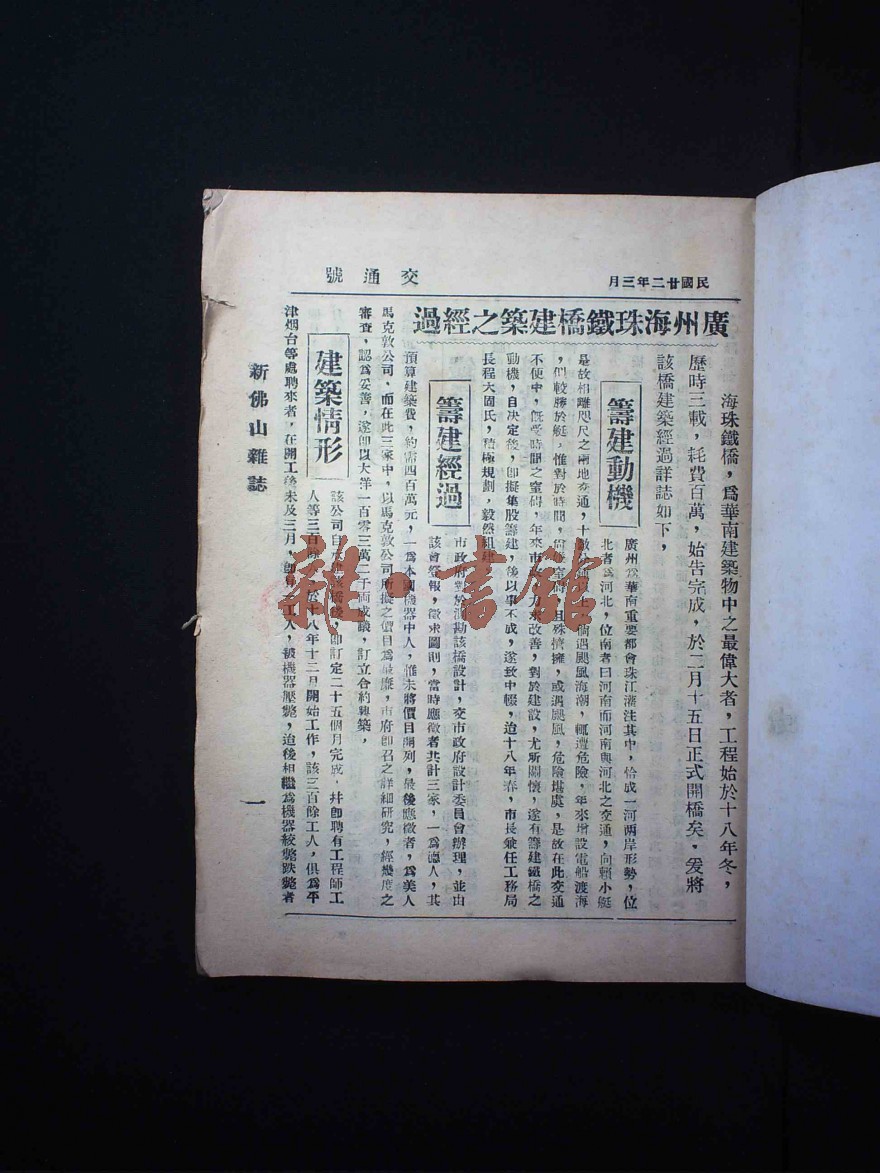 民國廿二年三月
交通號
廣州海珠鐵橋建築之經過
海珠鐵橋，爲華南建築物中之最偉大者，工程始於十八年冬，
歷時三載，耗費百萬，始告完成，於二月十五日正式開橋矣．爰將
該橋建築經過詳誌如下，
籌建動機
廣州爲華南重要都會珠江瀠注其中，恰成一河兩岸形勢，位
北者爲河北，位南者曰河南而河南與河北之交通，向賴小艇
是故相離咫尺之兩地交通，十數分鐘
遇颶風海潮，輒遭危險，年來增設電船渡海
，似較勝於艇，惟對於時間，
且殊擠擁，或遇颶風，危險堪虞，是故在此交通
不便中，旣受時間之窒碍，年來市
力求改善，對於建設，尤所關懷，遂有籌建鐵橋之
動機，自决定後，卽擬集股籌建，後以事不成，遂致中輟，迨十八年春，市長兼任工務局
長程天固氏，積極規劃，毅然組建
籌建經過
市政府對於測勘該橋設計，交市政府設計委員會辦理，並由
該會登報，徵求圖則，當時應徵者共計三家，一爲德人，其
預算建築費，約需四百萬元，一爲本國機器中人，惟未將價目開列，最後應徵者，爲美人
馬克敦公司，而在此三家中，以馬克敦公司所擬之價目爲最廉，市府卽召之詳細研究，經幾度之
審查，認爲妥善，遂卽以大洋一百零三萬二千両成議，訂立合約興築，
建築情形
該公司自
卽訂定二十五個月完成，幷卽聘有工程師工
人等三百餘
於十八年十二月開始工作，該三百餘工人，俱爲平
津烟台等處聘來者，在開工後未及三月，
工人，被機器壓斃，迨後相繼爲機器絞斃跌斃者
新佛山雜誌
一
雜·書館